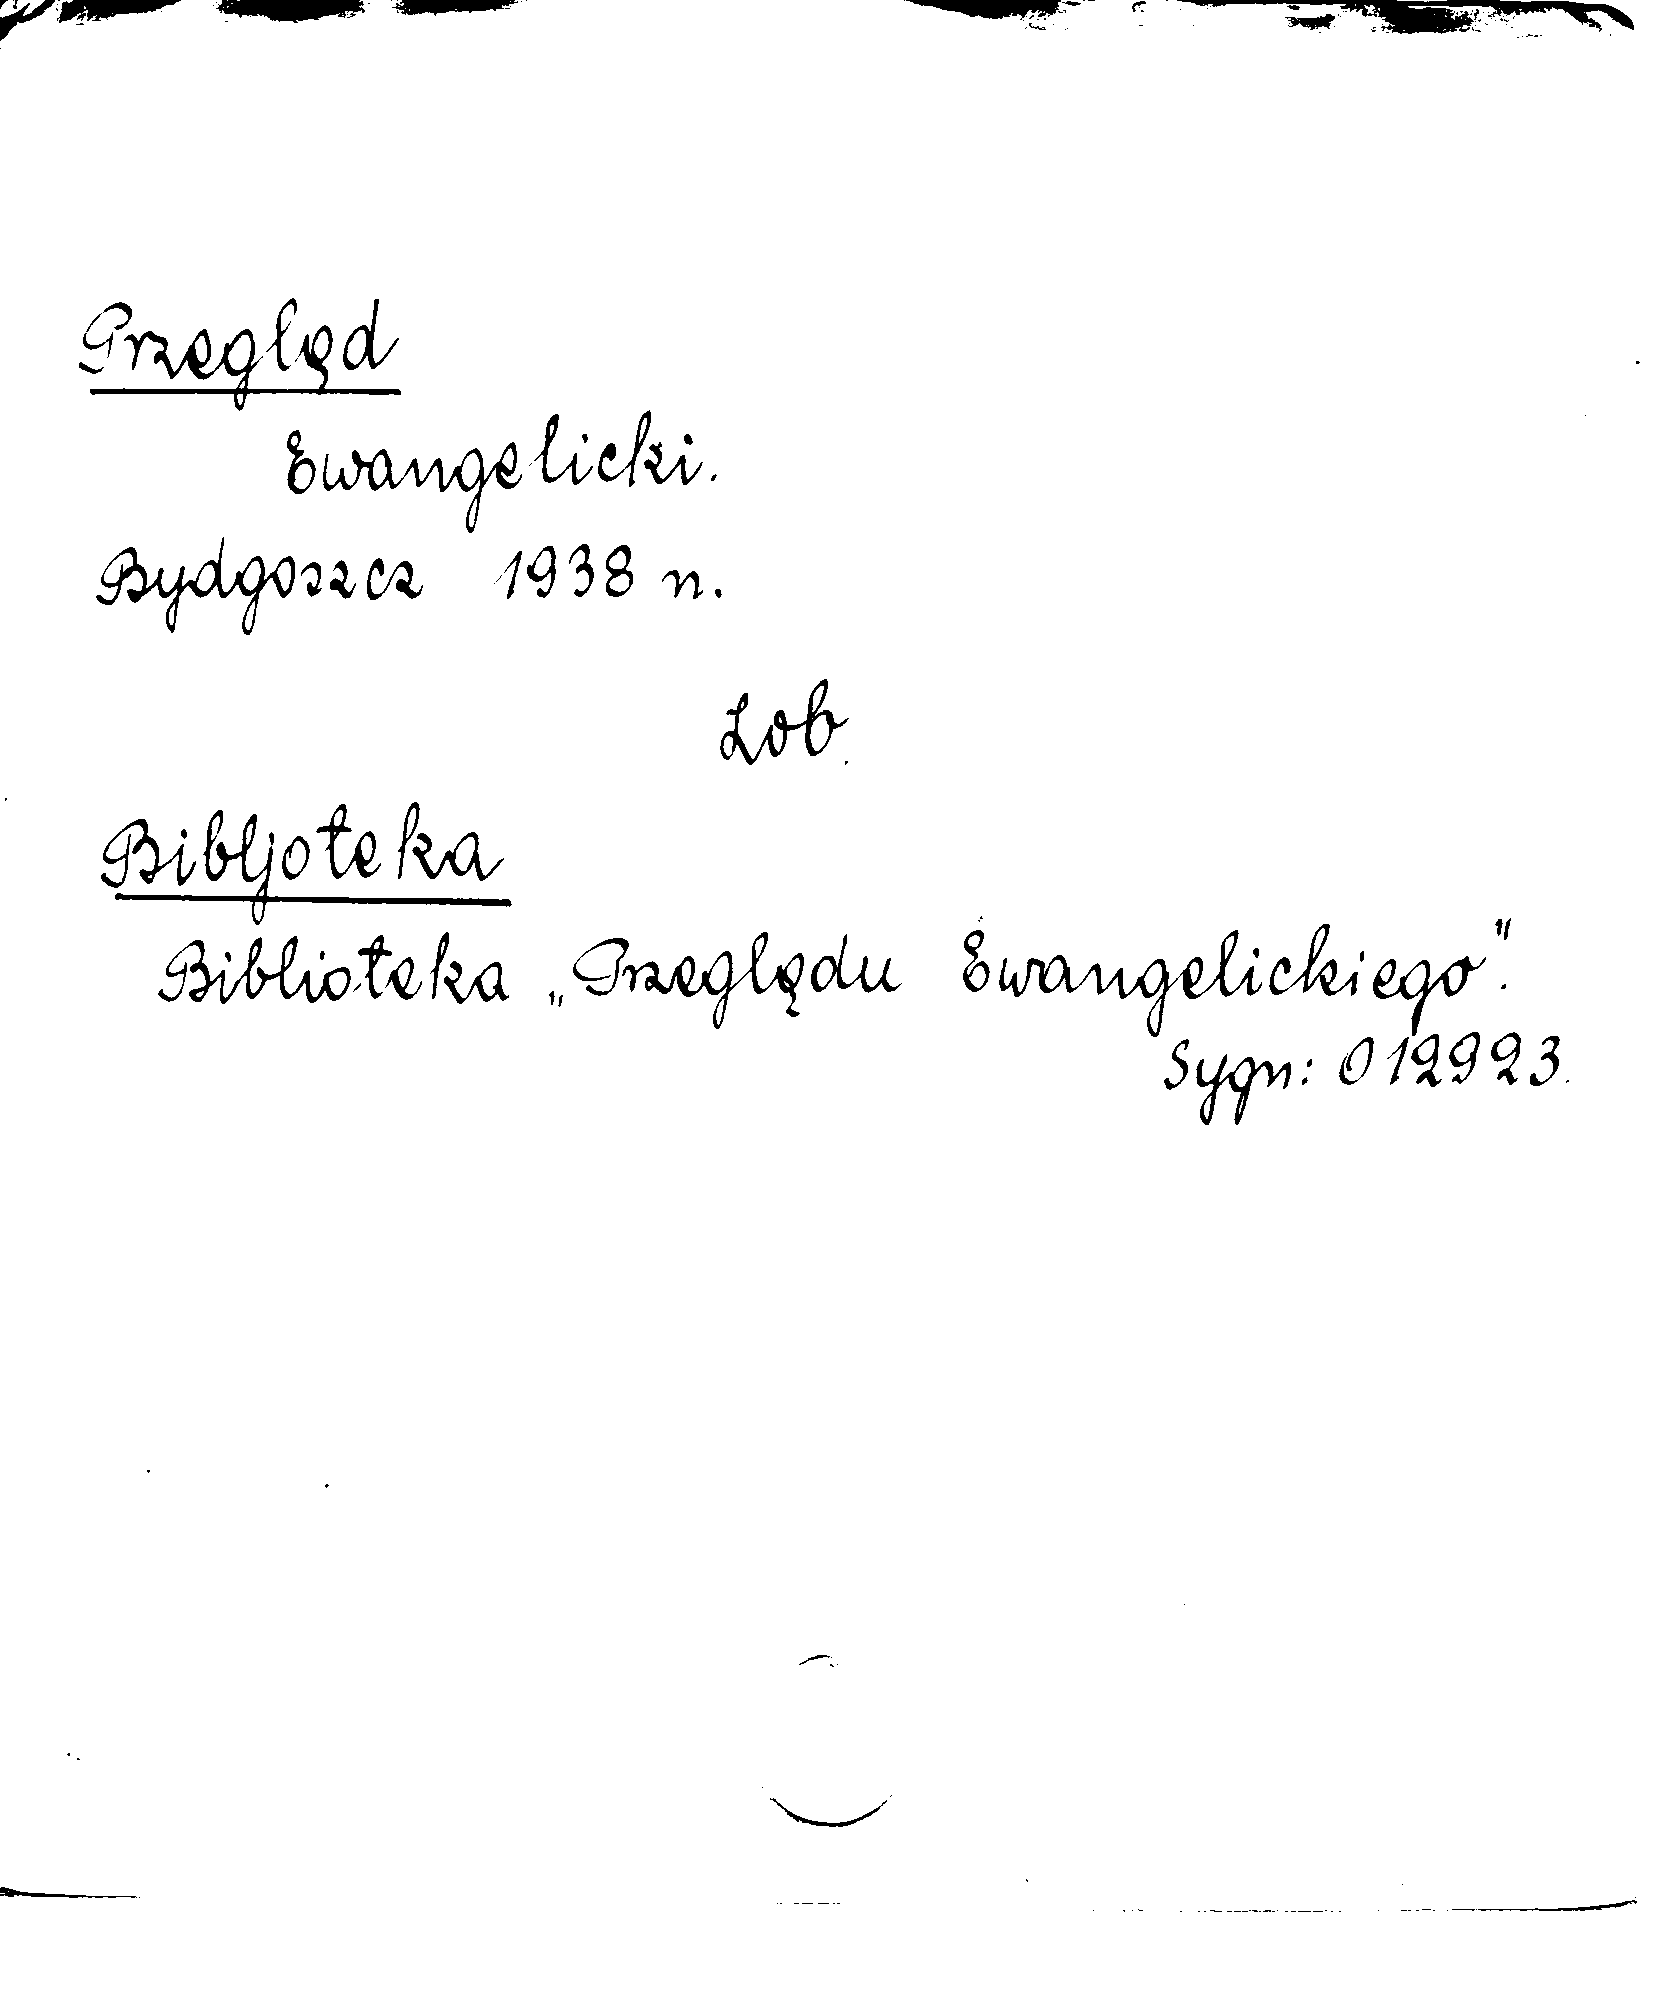 Przeględ
Ewangelicki.
Bydgoszcz 1938 n.
Zob.
Bibljoteka
Biblioteka „Przeględu Ewangelickiego".
Sygn: 012923.